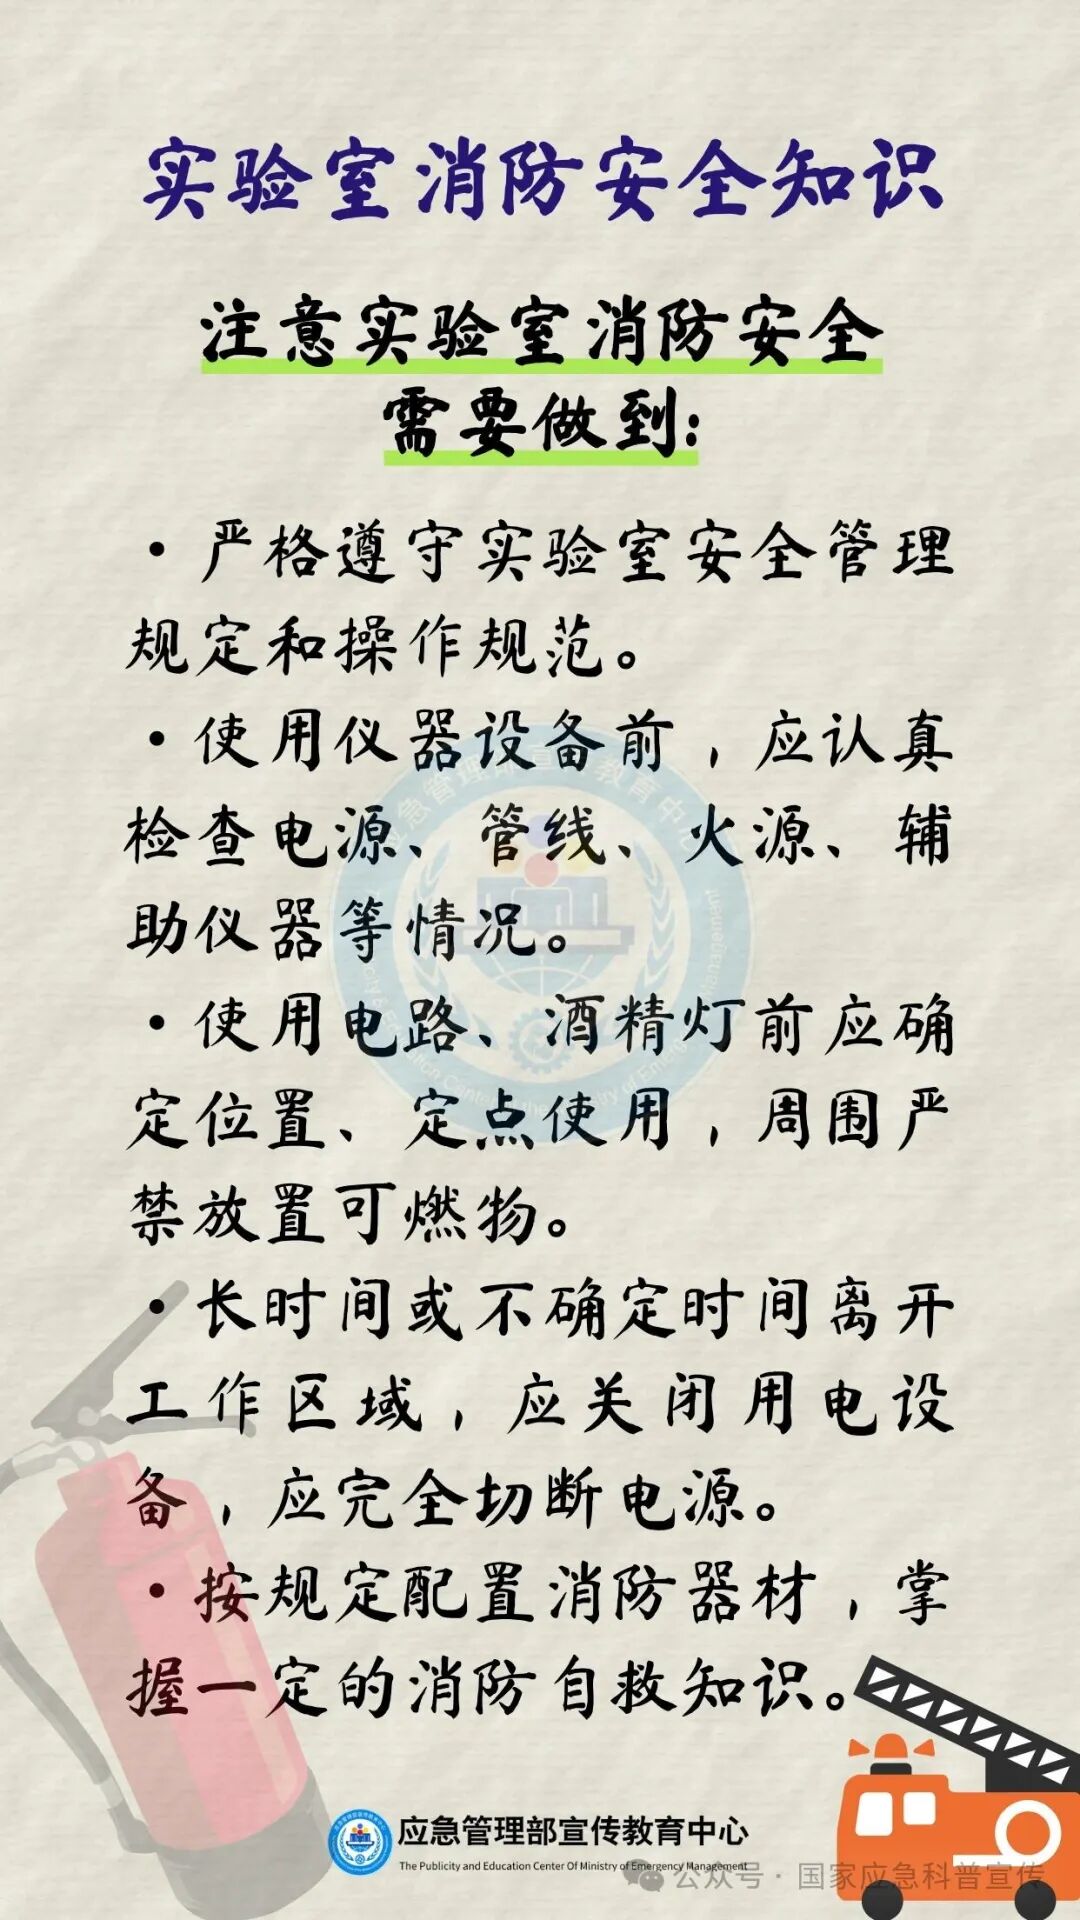 实验室消防安全知识
注意实验室消防安全
需要做到:
· 严格遵守实验室安全管理
规定和操作规范。
· 使用仪器设备前，应认真
检查电源、管线、火源、辅
助仪器等情况。
· 使用电路、酒精灯前应确
定位置、定点使用，周围严
禁放置可燃物。
· 长时间或不确定时间离开
工作区域，应关闭用电设
备，应完全切断电源。
· 按规定配置消防器材，掌
握一定的消防自救知识。
应急管理部宣传教育中心
The Publicity and Education Center Of Ministry of Emergency Management
公众号 · 国家应急科普宣传